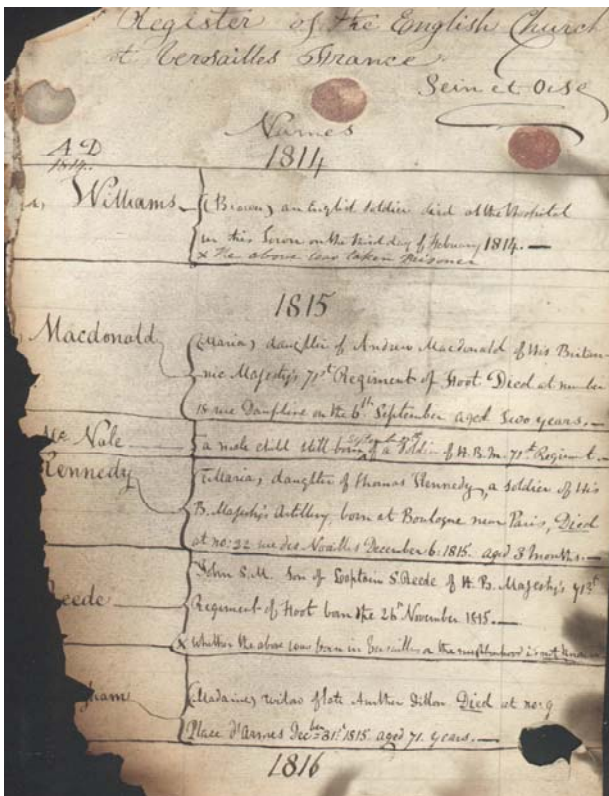 Register of the English Church
at Versailles France
Sein et Oise
Names
A D
1814.
1814
Williams (Brown) an English soldier died at the Hospital
in this Town on the third day of February 1814.—
x The above was taken Prisoner
1815
Macdonald (Maria) daughter of Andrew Macdonald of His Britan-
nic Majesty's 71st Regiment of Foot Died at number
18 rue Dauphine on the 6th September aged two years.—
Mc Nale a male child still born of a Soldier of H.B.M. 71st Regiment—
Kennedy (Maria, daughter of Thomas Kennedy, a soldier of His
B. Majesty's Artillery, born at Boulogne near Paris, Died
at no: 32 rue des Noailles December 6. 1815. aged 3 months.—
Reede John S.M. Son of Captain S. Reede of H. B. Majesty's
Regiment of Foot born the November 1815.—
x Whether the above was born in Versailles or the neighbourhood is not known
gham (Madaine) widow of late Arthur Dillon Died at no: 9
Place d'Armes Decber 31st 1815 aged 71. years.—
1816